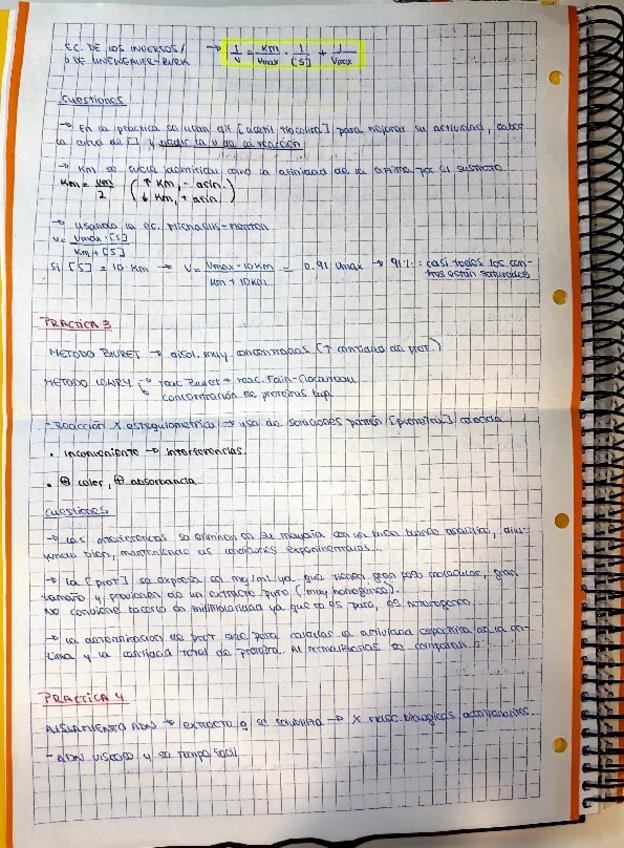 EC. DE LOS INVERSOS/ → 1/v = Km/Vmax · 1/[S] + 1/Vmax
O DE LINEWEAVER-BURK
Cuestiones
→ En la práctica se usan [acetil tiocolina] para medir su actividad,
la
→ Km se como la afinidad de la enzima por el sustrato
Km = Vm/2 (↑ Km, - afin.
↓ Km, + afin.)
→ Usando la ec. Michaelis-Menten
V = Vmax · [S] / Km + [S]
Si [S] = 10 · Km → V = Vmax · 10Km / Km + 10Km = 0.91 Vmax → 91% : casi todos los cen-
tros están saturados
PRACTICA 3
METODO BIURET → disol. muy concentradas (↑ cantidad de prot.)
METODO LOWRY reac. Biuret + reac. Folin-Ciocalteau
concentración de proteínas baja
- Reacción X estequiometrica → uso de soluciones patrón [proteína] conocida
· Inconveniente → Interferencias.
· ⊕ color, ⊕ absorbancia
Cuestiones
→ Las interferencias se eliminan en su mayoría con un buen blanco analítico,
bien, manteniendo las condiciones experimentales...
→ La [prot] se expresa en mg/ml ya que tienen gran peso molecular, gran
tamaño y provienen de un extracto puro (muy homogéneo).
No conviene hacerlo en milimolaridad ya que no es puro, es heterogeneo.
→ La determinación de prot sirve para calcular la actividad especifica de la en-
zima y la cantidad total de proteína. Al normalizarlas se comparan...
PRACTICA 4
AISLAMIENTO ADN → extracto q se → X biologicas
- ADN VISCOSO y se rompe facil